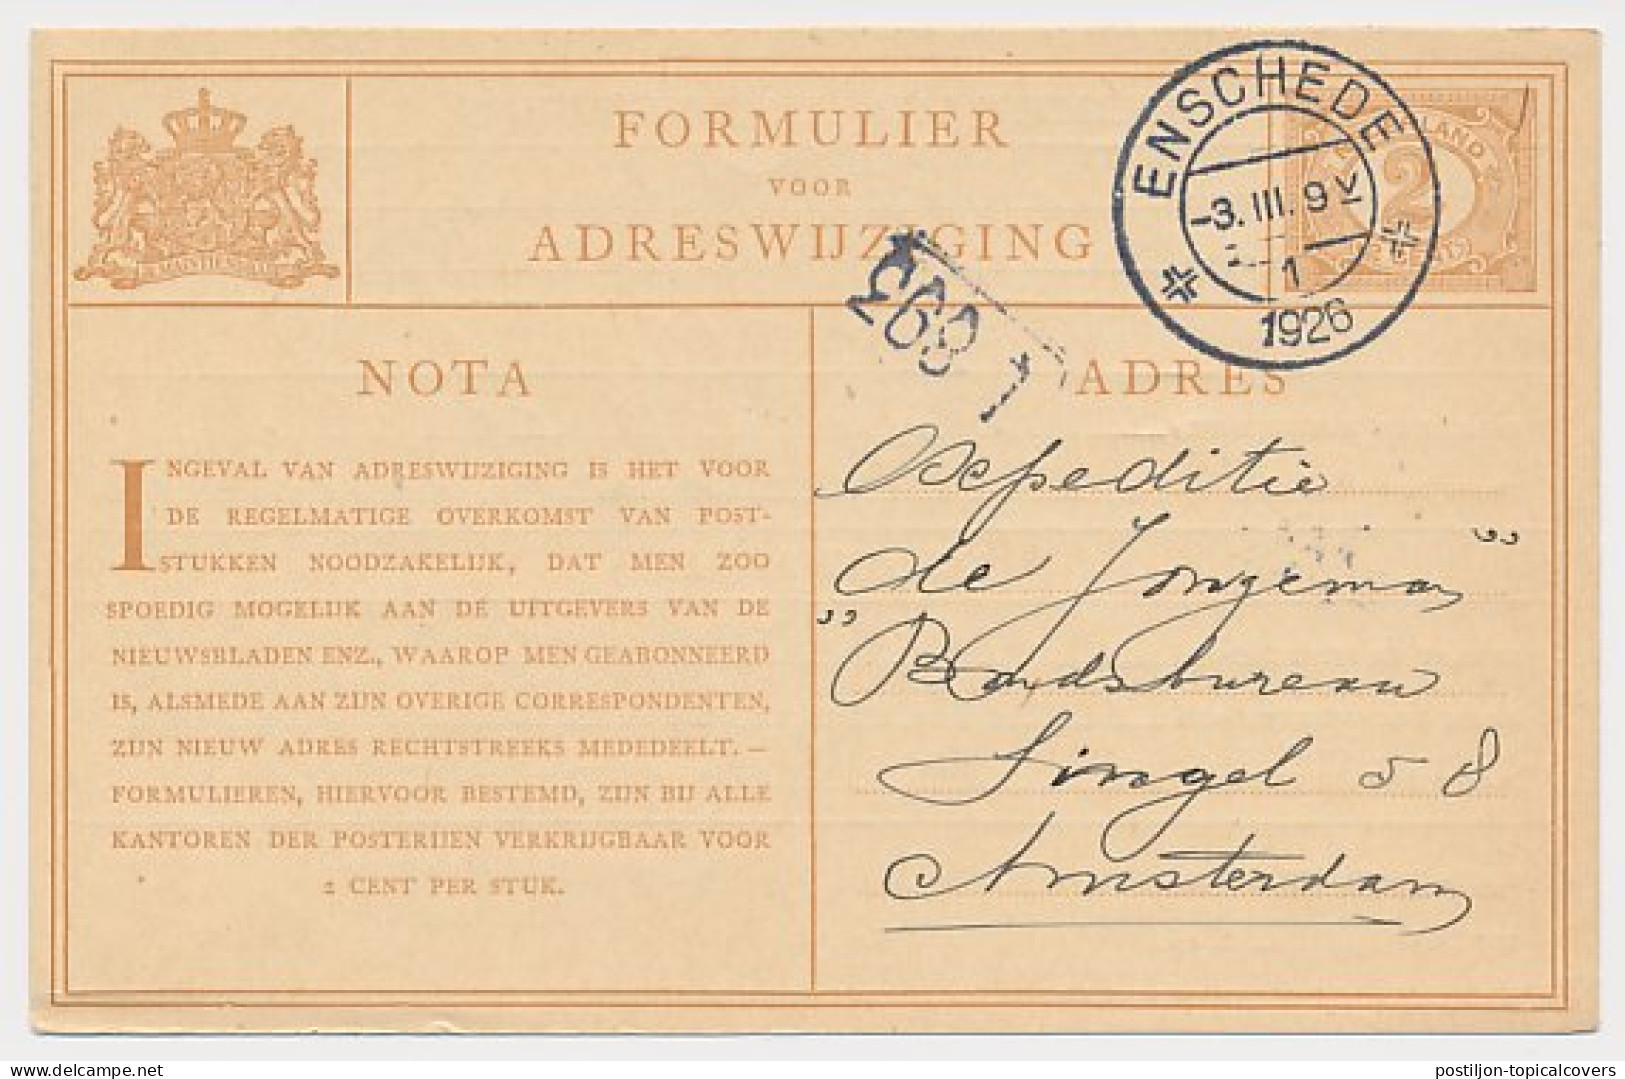 FORMULIER
VOOR
ADRESWIJZIGING
ENSCHEDE
-3. III. 9 V
1
1926
LAND
2
NOTA
INGEVAL VAN ADRESWIJZIGING IS HET VOOR
DE REGELMATIGE OVERKOMST VAN POST-
STUKKEN NOODZAKELIJK, DAT MEN ZOO
SPOEDIG MOGELIJK AAN DE UITGEVERS VAN DE
NIEUWSBLADEN ENZ., WAAROP MEN GEABONNEERD
IS, ALSMEDE AAN ZIJN OVERIGE CORRESPONDENTEN,
ZIJN NIEUW ADRES RECHTSTREEKS MEDEDEELT. —
FORMULIEREN, HIERVOOR BESTEMD, ZIJN BIJ ALLE
KANTOREN DER POSTERIJEN VERKRIJGBAAR VOOR
2 CENT PER STUK.
ADRES
Expeditie
de Jongeman"
"Bondsbureau
Singel 58
Amsterdam
delcampe.net
postiljon-topicalcovers